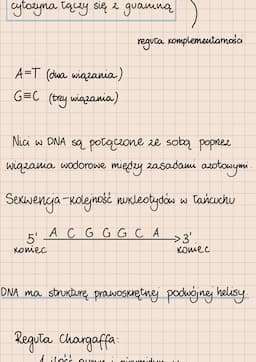 cytozyna łączy się z guaniną
reguła komplementarności
A=T (dwa wiązania)
G≡C (trzy wiązania)
Nici w DNA są połączone ze sobą poprzez
wiązania wodorowe między zasadami azotowymi.
Sekwencja - kolejność nukleotydów w łańcuchu
5' A C G G G C A 3'
koniec koniec
DNA ma strukturę prawoskrętnej podwójnej helisy.
Reguła Chargaffa: